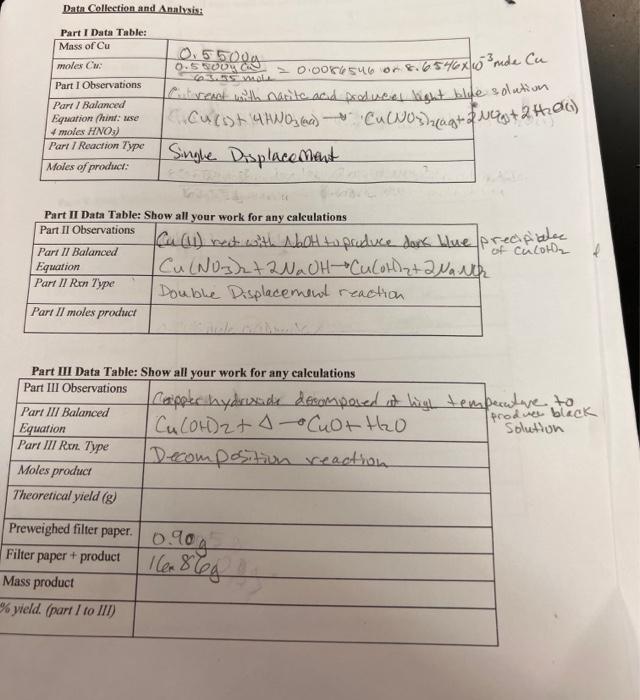 Data Collection and Analysis:
Part I Data Table:
Mass of Cu
0.5500g
moles Cu:
0.5500g Cu
63.55 mole
= 0.0086546 or 8.6546x10⁻³ mole Cu
Part I Observations
Cu react with acid produces light blue solution
Part I Balanced
Equation (hint: use
4 moles HNO₃)
Cu(s)+4HNO₃(aq) → Cu(NO₃)₂(aq)+2NO₂(g)+2H₂O(l)
Part I Reaction Type
Single Displacement
Moles of product:
Part II Data Table: Show all your work for any calculations
Part II Observations
Cu(II) react with NaOH to produce dark blue precipitates
of Cu(OH)₂
Part II Balanced
Equation
Cu(NO₃)₂+2NaOH→Cu(OH)₂+2NaNO₃
Part II Rxn Type
Double Displacement reaction
Part II moles product
Part III Data Table: Show all your work for any calculations
Part III Observations
Copper hydroxide decomposed at high temperature to
produces black
solution
Part III Balanced
Equation
Cu(OH)₂+Δ→CuO+H₂O
Part III Rxn. Type
Decomposition reaction
Moles product
Theoretical yield (g)
Preweighed filter paper.
0.90g
Filter paper + product
16.86g
Mass product
% yield. (part I to III)